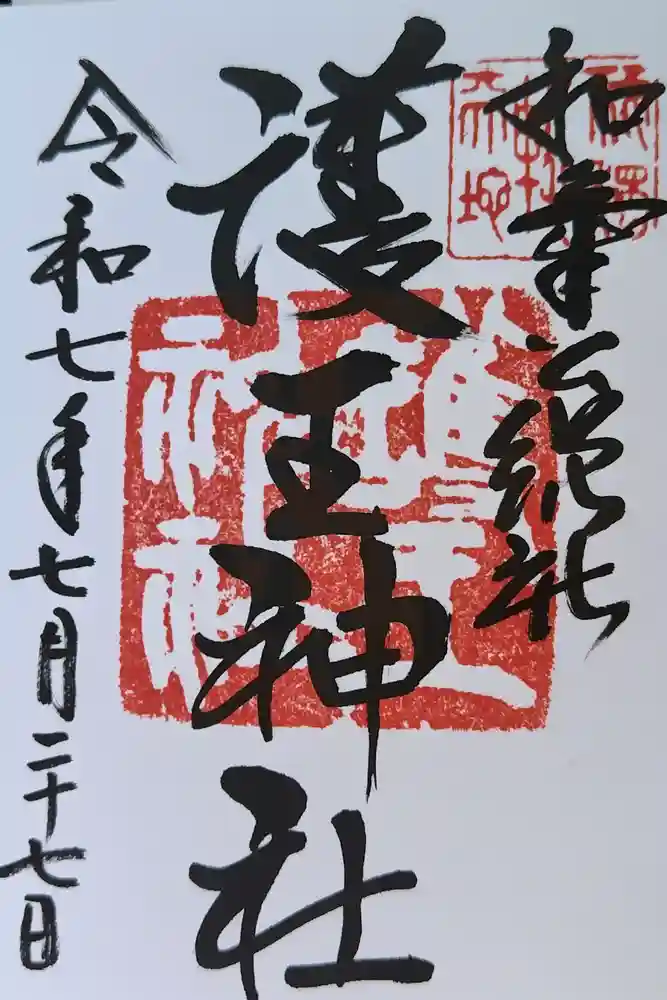 和氣
護王神社
護王
神社
令和七年七月二十七日